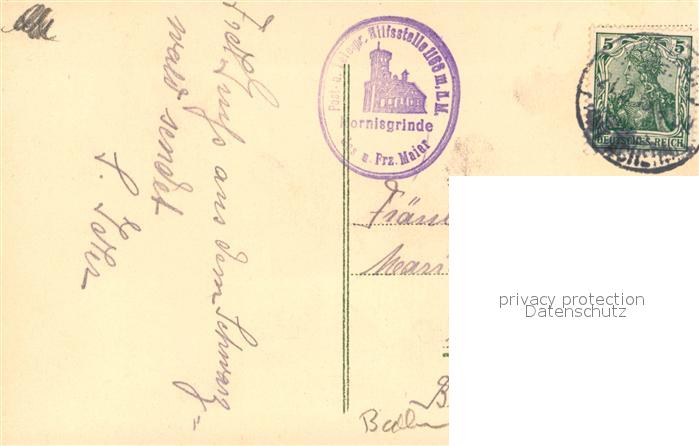 Frdl. Gruß aus dem Schwarz=
wald sendet
Post- u. Telegr. Hilfsstelle 1166 m. ü. M.
Hornisgrinde
u. Frz. Maier
5 5
DEUTSCHES REICH
Fräul
Mari
privacy protection
Datenschutz
B